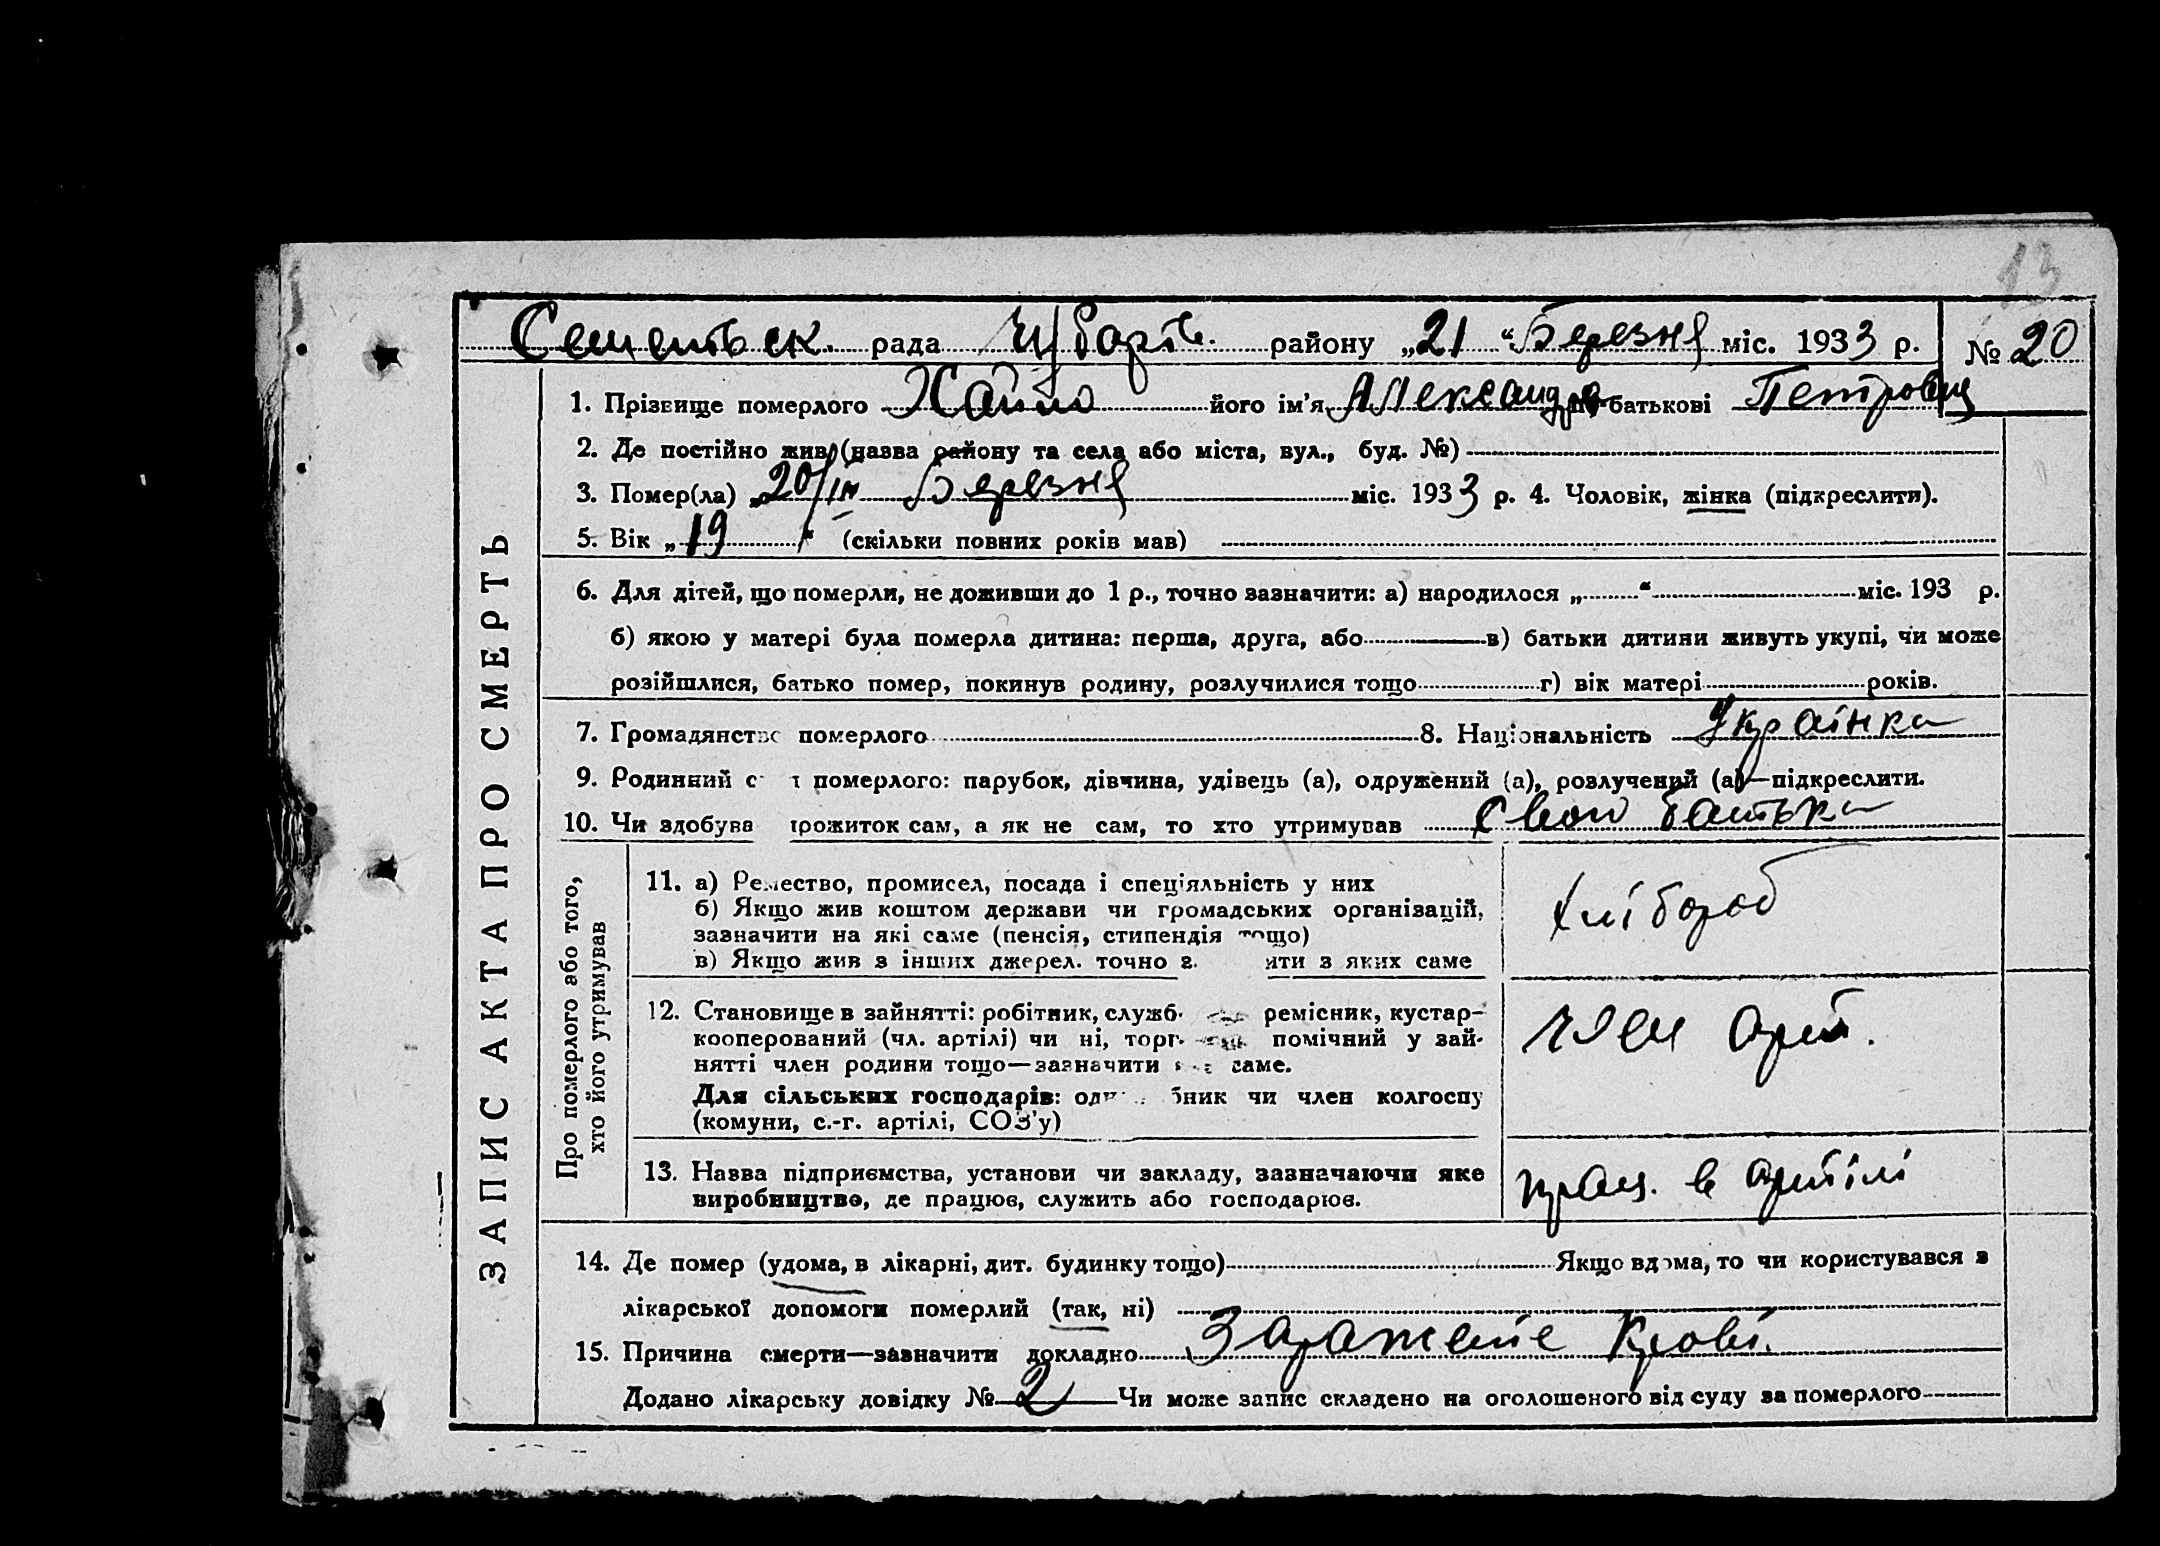 13
рада Чубарів. району „21“ Березня міс. 1933 р. № 20
ЗАПИС АКТА ПРО СМЕРТЬ
1. Прізвище померлого його ім'я Александра по батькові Петровна
2. Де постійно жив (назва району та села або міста, вул., буд. №)
3. Помер(ла) „20/III Березня міс. 1933 р. 4. Чоловік, жінка (підкреслити).
5. Вік „19“ (скільки повних років мав)
6. Для дітей, що померли, не доживши до 1 р., точно зазначити: а) народилося „ “ міс. 193 р.
б) якою у матері була померла дитина: перша, друга, або в) батьки дитини живуть укупі, чи може
розійшлися, батько помер, покинув родину, розлучилися тощо г) вік матері років.
7. Громадянство померлого 8. Національність Українка
9. Родинний с і померлого: парубок, дівчина, удівець (а), одружений (а), розлучений (а)—підкреслити.
10. Чи здобува прожиток сам, а як не сам, то хто утримував батька
Про померлого або того,
хто його утримував
11. а) Ремество, промисел, посада і спеціяльність у них
б) Якщо жив коштом держави чи громадських організацій,
зазначити на які саме (пенсія, стипендія тощо)
в) Якщо жив з інших джерел. точно з ити з яких саме
Хлібороб
12. Становище в зайнятті: робітник, служб ремісник, кустар-
кооперований (чл. артілі) чи ні, торг помічний у зай-
нятті член родини тощо—зазначити саме.
Для сільських господарів: оди бник чи член колгоспу
(комуни, с.-г. артілі, СОЗ'у)
член арт.
13. Назва підприємства, установи чи закладу, зазначаючи яке
виробництво, де працює, служить або господарює.
прац. в артілі
14. Де помер (удома, в лікарні, дит. будинку тощо) Якщо вдома, то чи користувався з
лікарської допомоги померлий (так, ні)
15. Причина смерти—зазначити докладно Зараженіе крові.
Додано лікарську довідку № 2 Чи може запис складено на оголошеного від суду за померлого